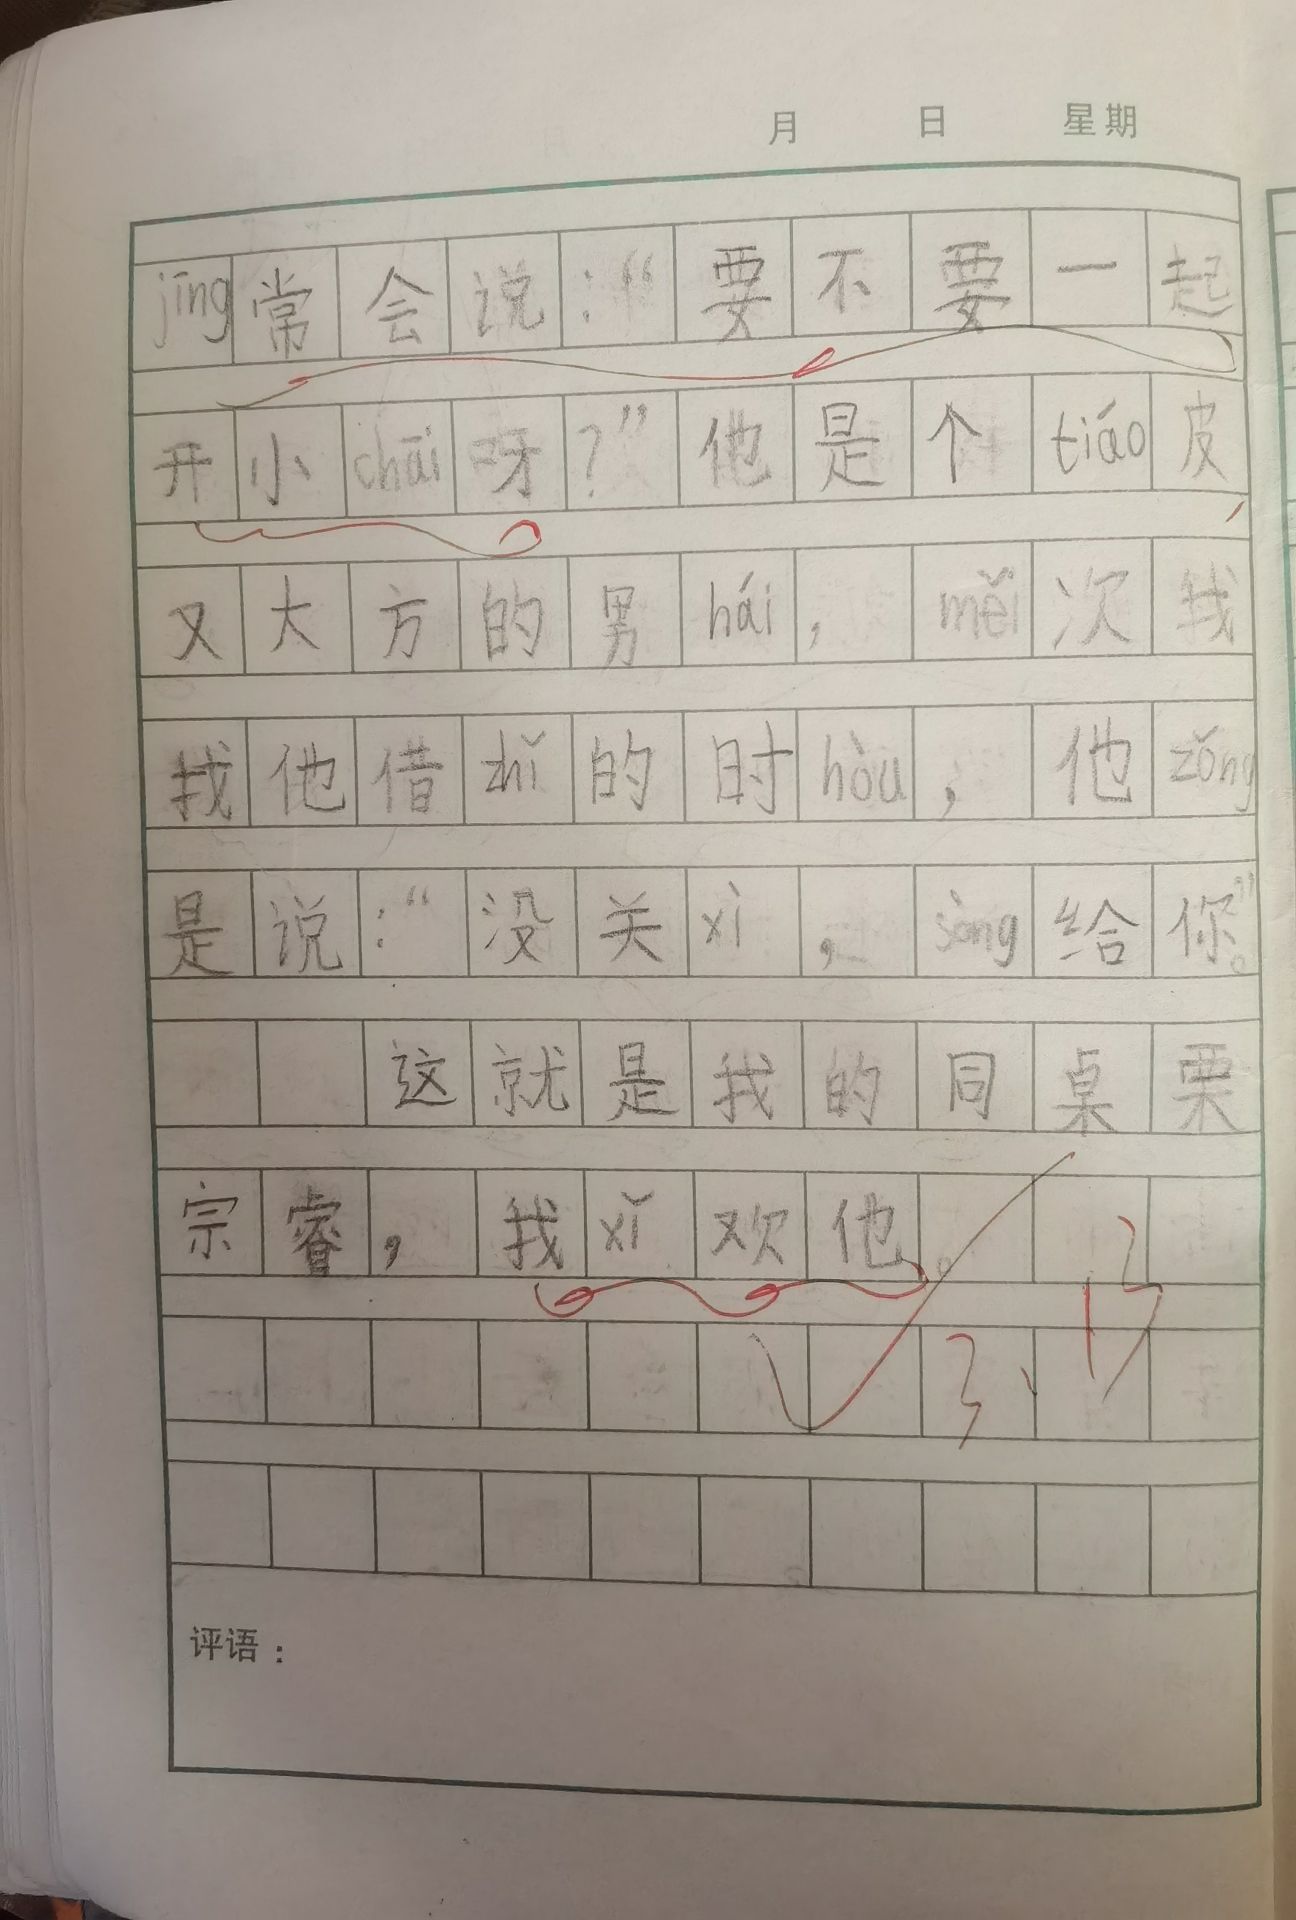 月 日 星期
jīng常会说：“要不要一起
开小chāi呀？”他是个tiáo皮
又大方的男hái，měi次我
找他借zhǐ的时hòu，他zǒng
是说：“没关xì，sòng给你。”
这就是我的同桌栗
宗睿，我xǐ欢他。
3、13
评语：